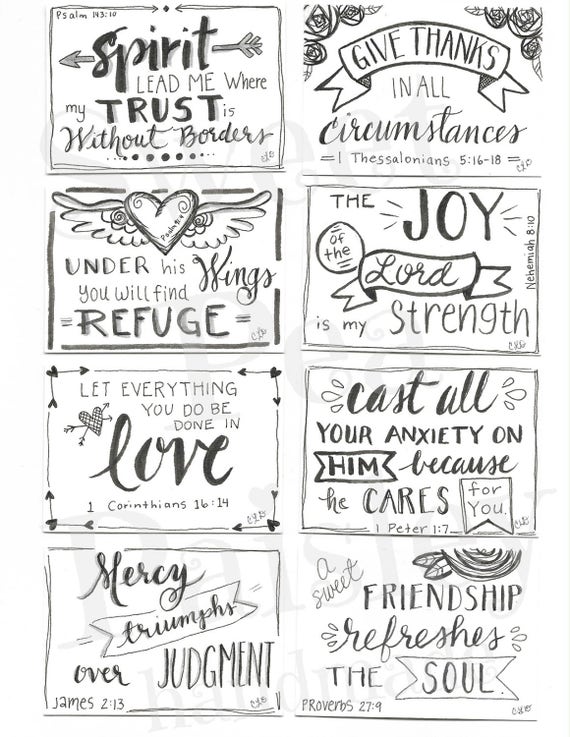 Psalm 143:10
Spirit
LEAD ME Where
my TRUST is
Without Borders
CLD
GIVE THANKS
IN ALL
Circumstances
1 Thessalonians 5:16-18
CLD
Psalm 91:4
UNDER his Wings
you will find
REFUGE
CLD
THE JOY
of the
Lord
is my Strength
Nehemiah 8:10
CLD
LET EVERYTHING
YOU DO BE
DONE IN
love
1 Corinthians 16:14
CLD
cast all
YOUR ANXIETY ON
HIM because
he CARES for You.
1 Peter 1:7
CLD
Mercy
triumphs
over JUDGMENT
James 2:13
CLD
a sweet
FRIENDSHIP
refreshes
THE SOUL.
Proverbs 27:9
CLD
Sweet
Pea
Paisley
handmade